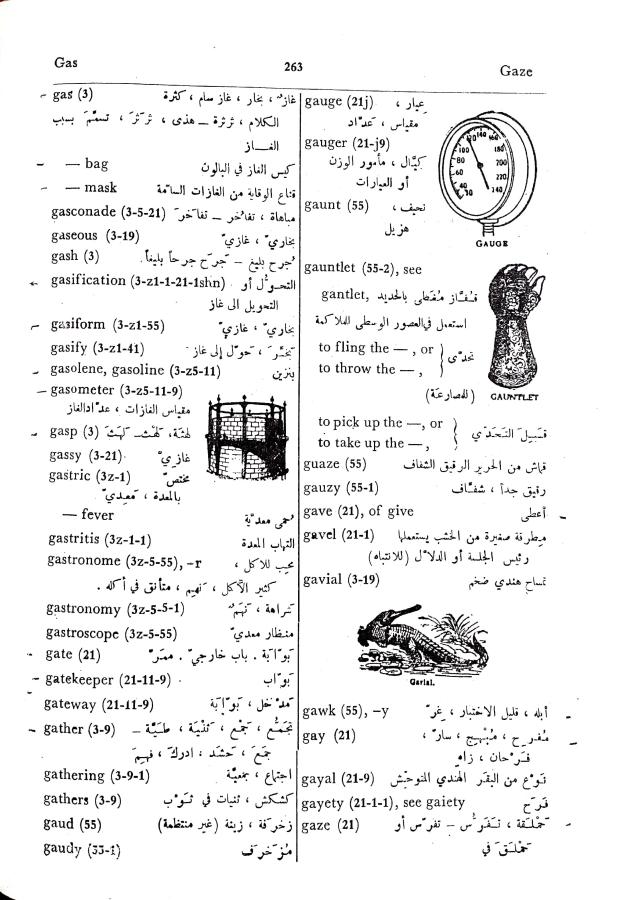 Gas
263
Gaze
gas (3) غاز، بخار، غاز سام، كثرة
الكلام، ثرثرة ــ هذى، ثرثر، تسمم بسبب
الغـــاز
— bag كيس الغاز في البالون
— mask قناع الوقاية من الغازات السامة
gasconade (3-5-21) مباهاة، تفاخر ــ تفاخر
gaseous (3-19) بخاري، غازي
gash (3) جرح بليغ ــ جرح جرحاً بليغاً
gasification (3-z1-1-21-1shn) التحول أو
التحويل الى غاز
gasiform (3-z1-55) بخاري، غازي
gasify (3-z1-41) تبخر، حول إلى غاز
gasolene, gasoline (3-z5-11) بنزين
gasometer (3-z5-11-9)
مقياس الغازات، عداد الغاز
gasp (3) لهثة، لهث ــ لهث
gassy (3-21) غازي
gastric (3z-1) مختص
بالمعدة، معدي
— fever حمى معدية
gastritis (3z-1-1) التهاب المعدة
gastronome (3z-5-55), -r محب للاكل،
كثير الأكل، نهيم، متأنق في أكله.
gastronomy (3z-5-5-1) شراهة، نهم
gastroscope (3z-5-55) منظار معدي
gate (21) بوابة. باب خارجي. ممر
gatekeeper (21-11-9) بواب
gateway (21-11-9) مدخل، بوابة
gather (3-9) تجمع، جمع، ثنية، طية ــ
جمع، حشد، ادرك، فهم
gathering (3-9-1) اجتماع، جمعية
gathers (3-9) كشكش، ثنيات في ثوب
gaud (55) زخرفة، زينة (غير منتظمة)
gaudy (55-1) مزخرف
gauge (21j) عيار،
مقياس، عداد
gauger (21-j9)
كيال، مأمور الوزن
أو العيارات
gaunt (55) نحيف،
هزيل
GAUGE
gauntlet (55-2), see
gantlet, قفاز مغطى بالحديد
استعمل في العصور الوسطى للملاكمة
to fling the —, or
to throw the —, تحدى
(للمصارعة)
GAUNTLET
to pick up the —, or
to take up the —, قبيل التحدي
guaze (55) قماش من الحرير الرقيق الشفاف
gauzy (55-1) رقيق جداً، شفاف
gave (21), of give أعطى
gavel (21-1) مطرقة صغيرة من الخشب يستعملها
رئيس الجلسة أو الدلال (للانتباه)
gavial (3-19) تمساح هندي ضخم
Gavial.
gawk (55), -y أبله، قليل الاختبار، غر
gay (21) مفرح، مبهج، سار،
فرحان، زاه
gayal (21-9) نوع من البقر الهندي المتوحش
gayety (21-1-1), see gaiety فرح
gaze (21) حملقة، تفرس ــ تفرس أو
حملق في